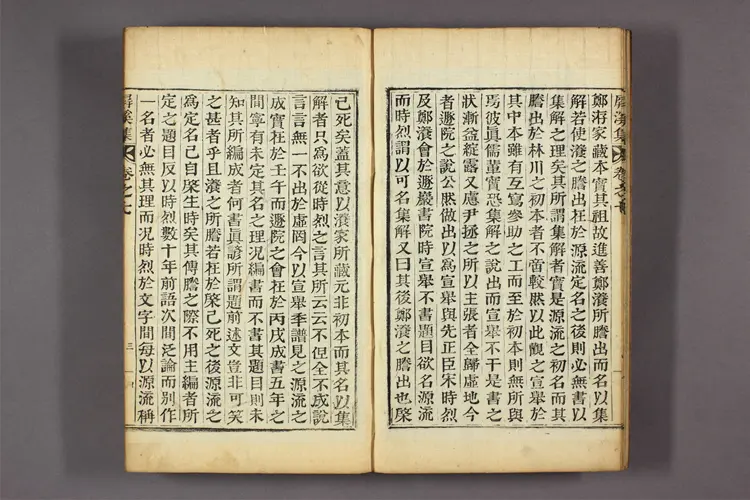 溪集
鄭府家藏本實其祖故進善鄭瀁所謄出而名以集
解若使瀁之謄出在於源流定名之後則必無書以
集解之理矣其所謂集解者實是源流之初名而其
謄出於林川之初本者不啻較然以此觀之宣擧於
其中本雖有互寫參助之工而至於初本則無所與
焉彼眞儒輩實恐集解之說出而宣擧不干是書之
狀漸益綻露又慮尹拯之所以主張者全歸虛地今
者遯院之說公然做出以爲宣擧與先正臣宋時烈
及鄭瀁會於遯巖書院時宣擧不書題目欲名源流
而時烈謂以可名集解又曰其後鄭瀁之謄出也棨
已死矣蓋其意以瀁家所藏元非初本而其名以集
解者只爲欲從時烈之言其所云云不但全不成說
言言無一不出於虛罔今以宣擧季譜見之源流之
成實在於壬午而遯院之會在於丙戌成書五年之
間寧有未定其名之理況編書而不書其題目則未
知其所編成者何書眞諺所謂題前述文豈非可笑
之甚者乎且瀁之所謄若在於棨已死之後源流之
爲定名已自棨生時矣其傳謄之際不用主編者所
定之題目反以時烈數十年前語次間泛論而別作
一名者必無其理而況時烈於文字間每以源流稱
屛溪集 卷之七 三